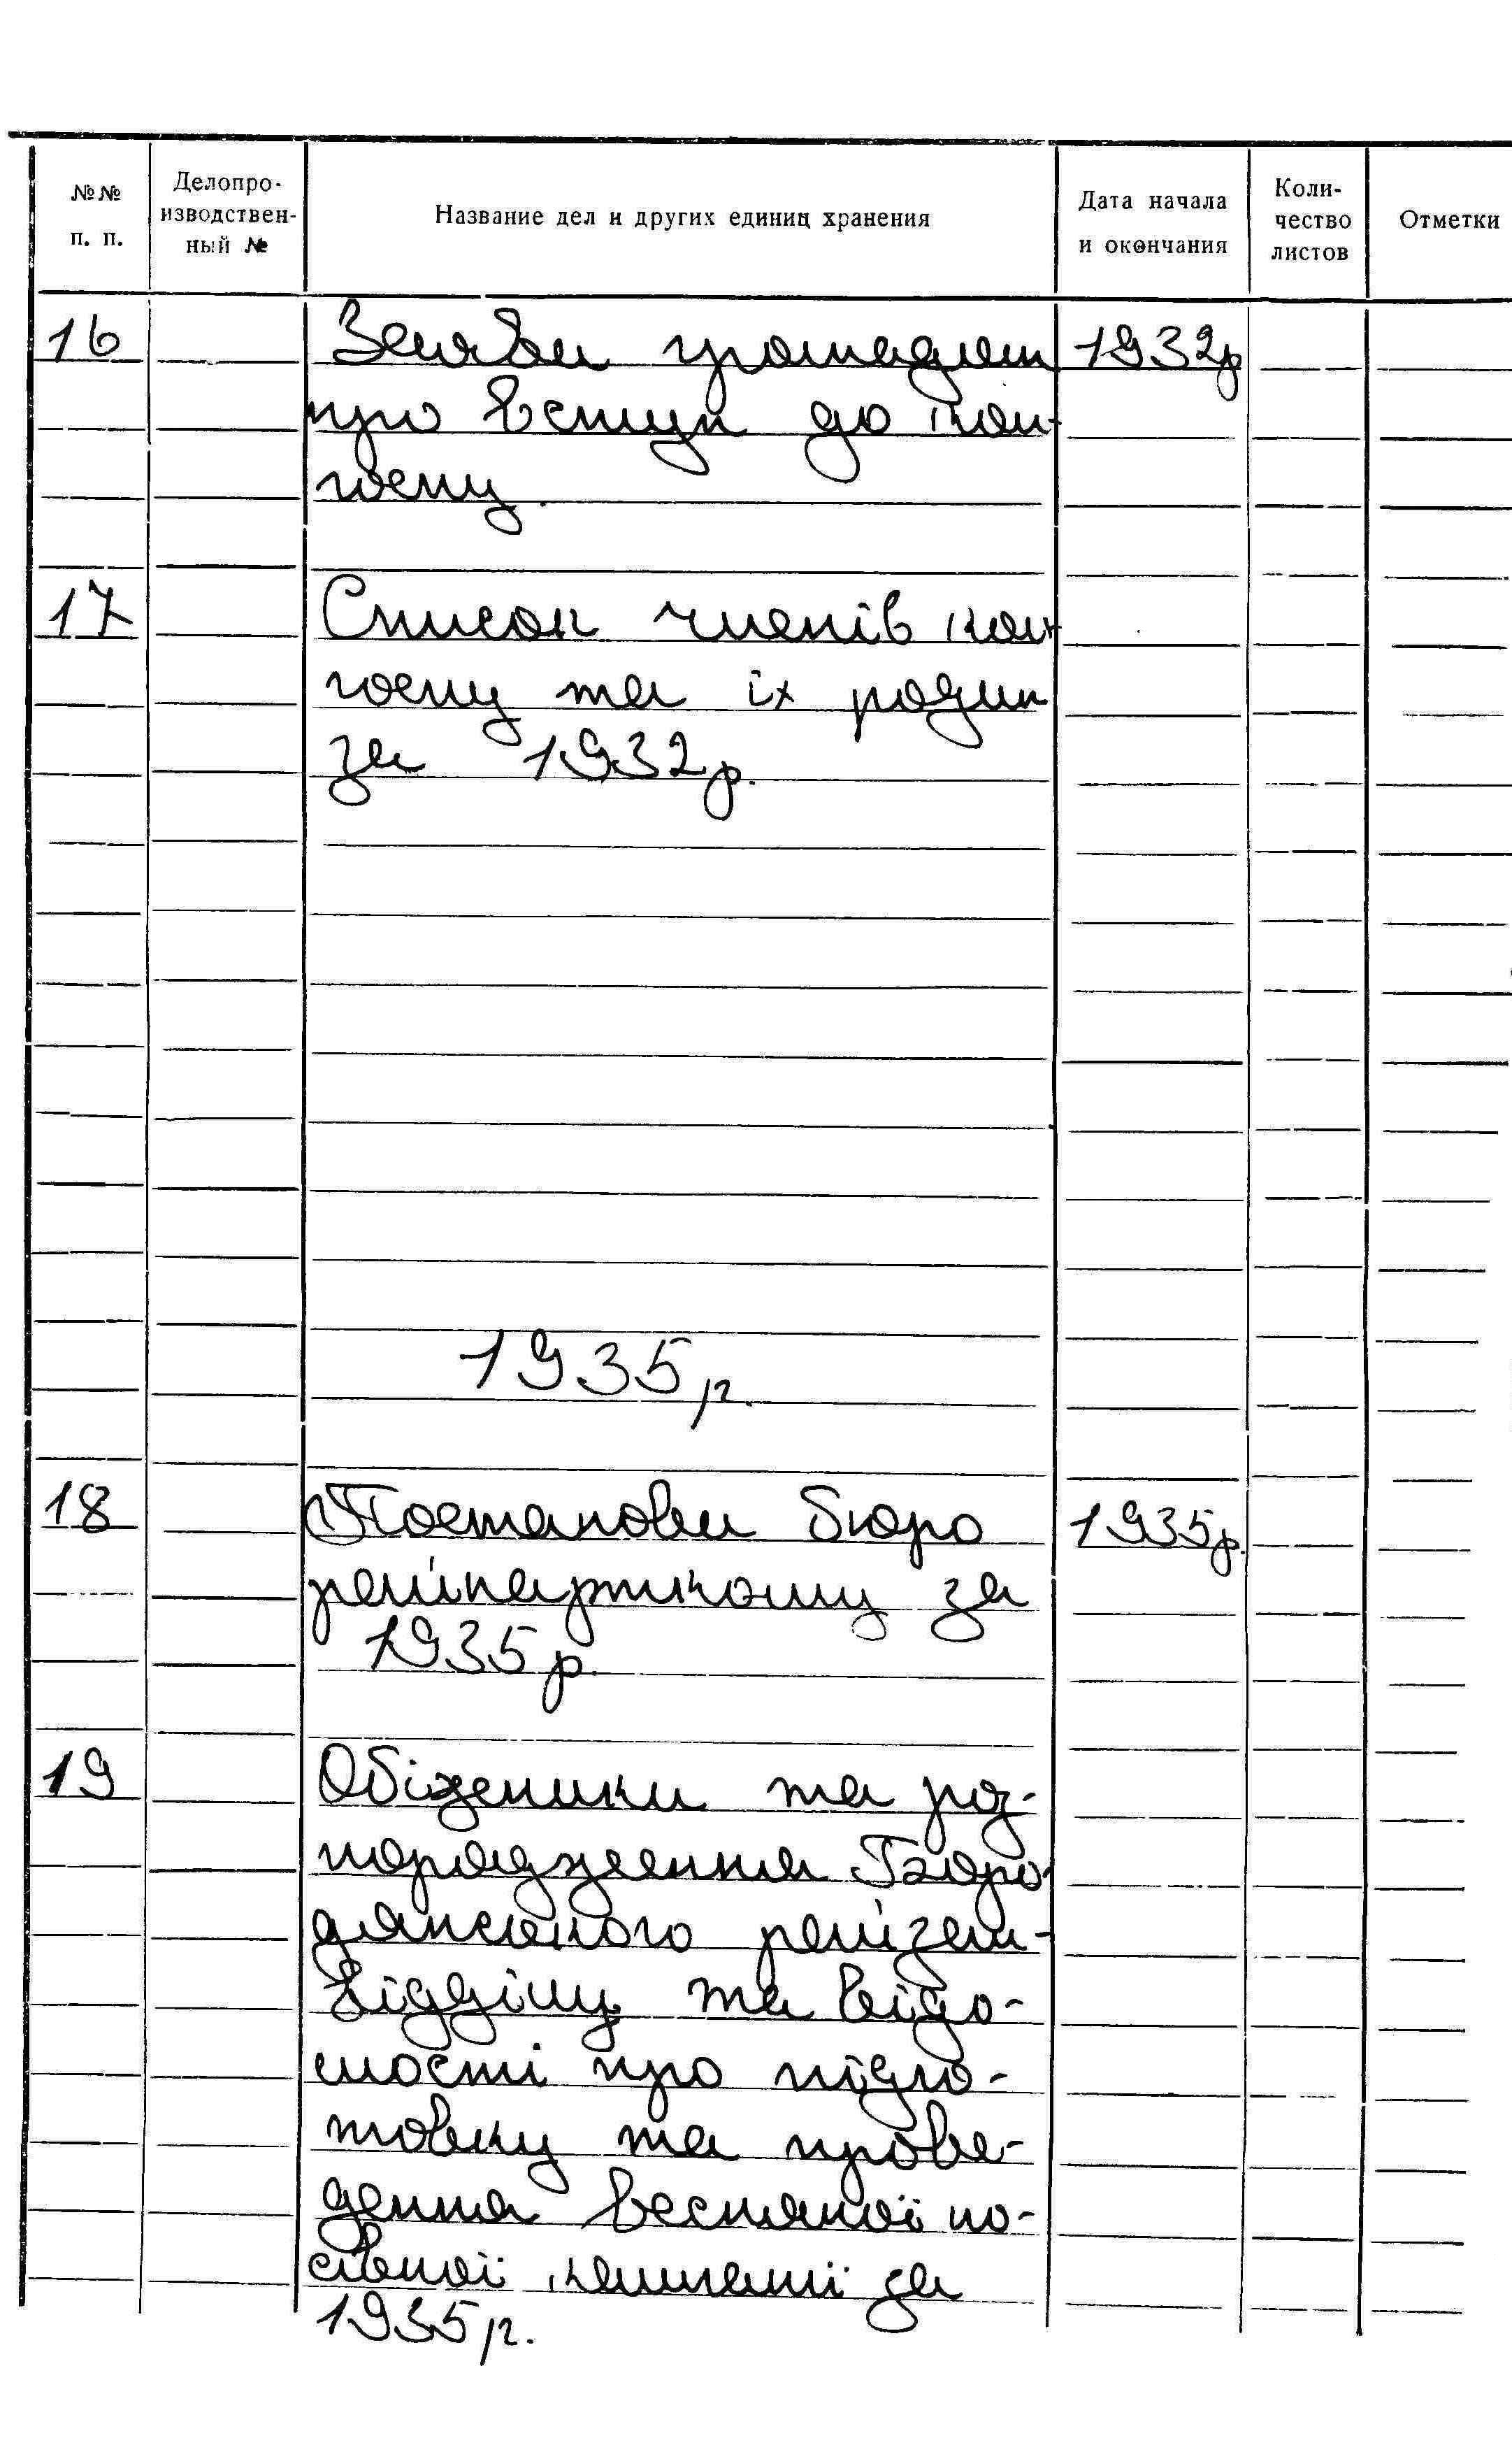 №№ п. п. Делопро-изводствен-ный № Название дел и других единиц хранения Дата начала и окончания Коли-чество листов Отметки
16 Заяви громадян 1932р
про вступ до кол-
госпу.
17 Список членів кол-
госпу та іх родин
за 1932р.
1935р.
18 Постанови бюро 1935р.
райпарткому за
1935р.
19 Обіжники та роз-
порядження Бюро-
дянського райзем-
відділу та відо-
мості про підго-
товку та прове-
дення весняної по-
сівної кампанії за
1935р.